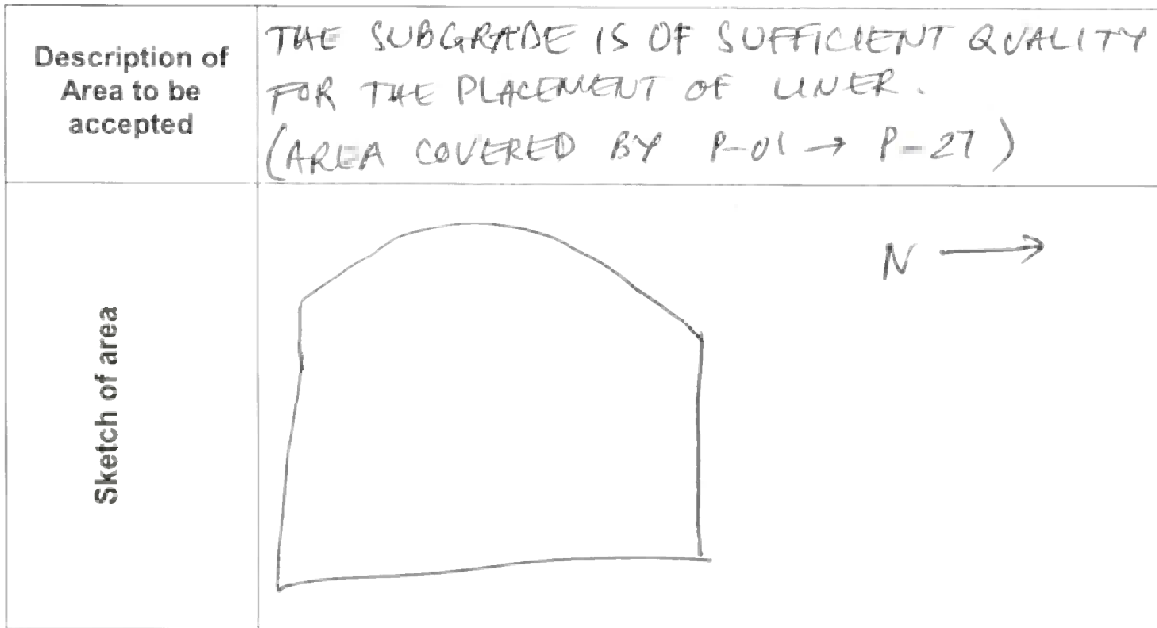 Description of
Area to be
accepted
THE SUBGRADE IS OF SUFFICIENT QUALITY
FOR THE PLACEMENT OF LINER.
(AREA COVERED BY P-01 → P-27)
Sketch of area
N →